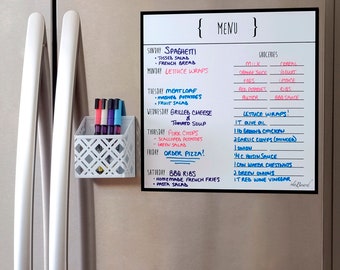 { MENU }
SUNDAY SPAGHETTI
• TOSSED SALAD
• FRENCH BREAD
MONDAY LETTUCE WRAPS
TUESDAY MEATLOAF
• MASHED POTATOES
• FRUIT SALAD
WEDNESDAY GRILLED CHEESE
& TOMATO SOUP
THURSDAY PORK CHOPS
• SCALLOPED POTATOES
• GREEN SALAD
FRIDAY ORDER PIZZA!
SATURDAY BBQ RIBS
• HOMEMADE FRENCH FRIES
• PASTA SALAD
GROCERIES
MILK CEREAL
ORANGE JUICE YOGURT
EGGS
RED POTATOES RIBS
BUTTER BBQ SAUCE
LETTUCE WRAPS:
1T OLIVE OIL
1 lb GROUND CHICKEN
2 GARLIC CLOVES (MINCED)
1 ONION
1/4 c HOISIN SAUCE
1 CAN WATER CHESTNUTS
2 GREEN ONIONS
1T RED WINE VINEGAR